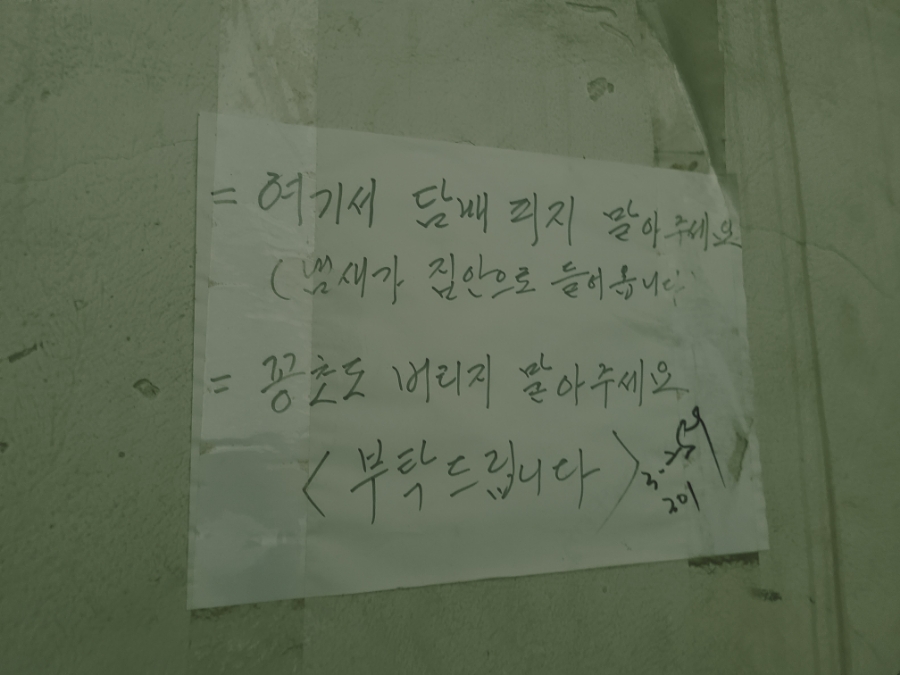 = 여기서 담배 피지 말아주세요
( 냄새가 집안으로 들어옵니다
= 꽁초도 버리지 말아주세요
< 부탁드립니다 >
201